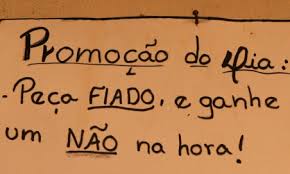 Promoção do dia:
- Peça FIADO, e ganhe
um NÃO na hora!